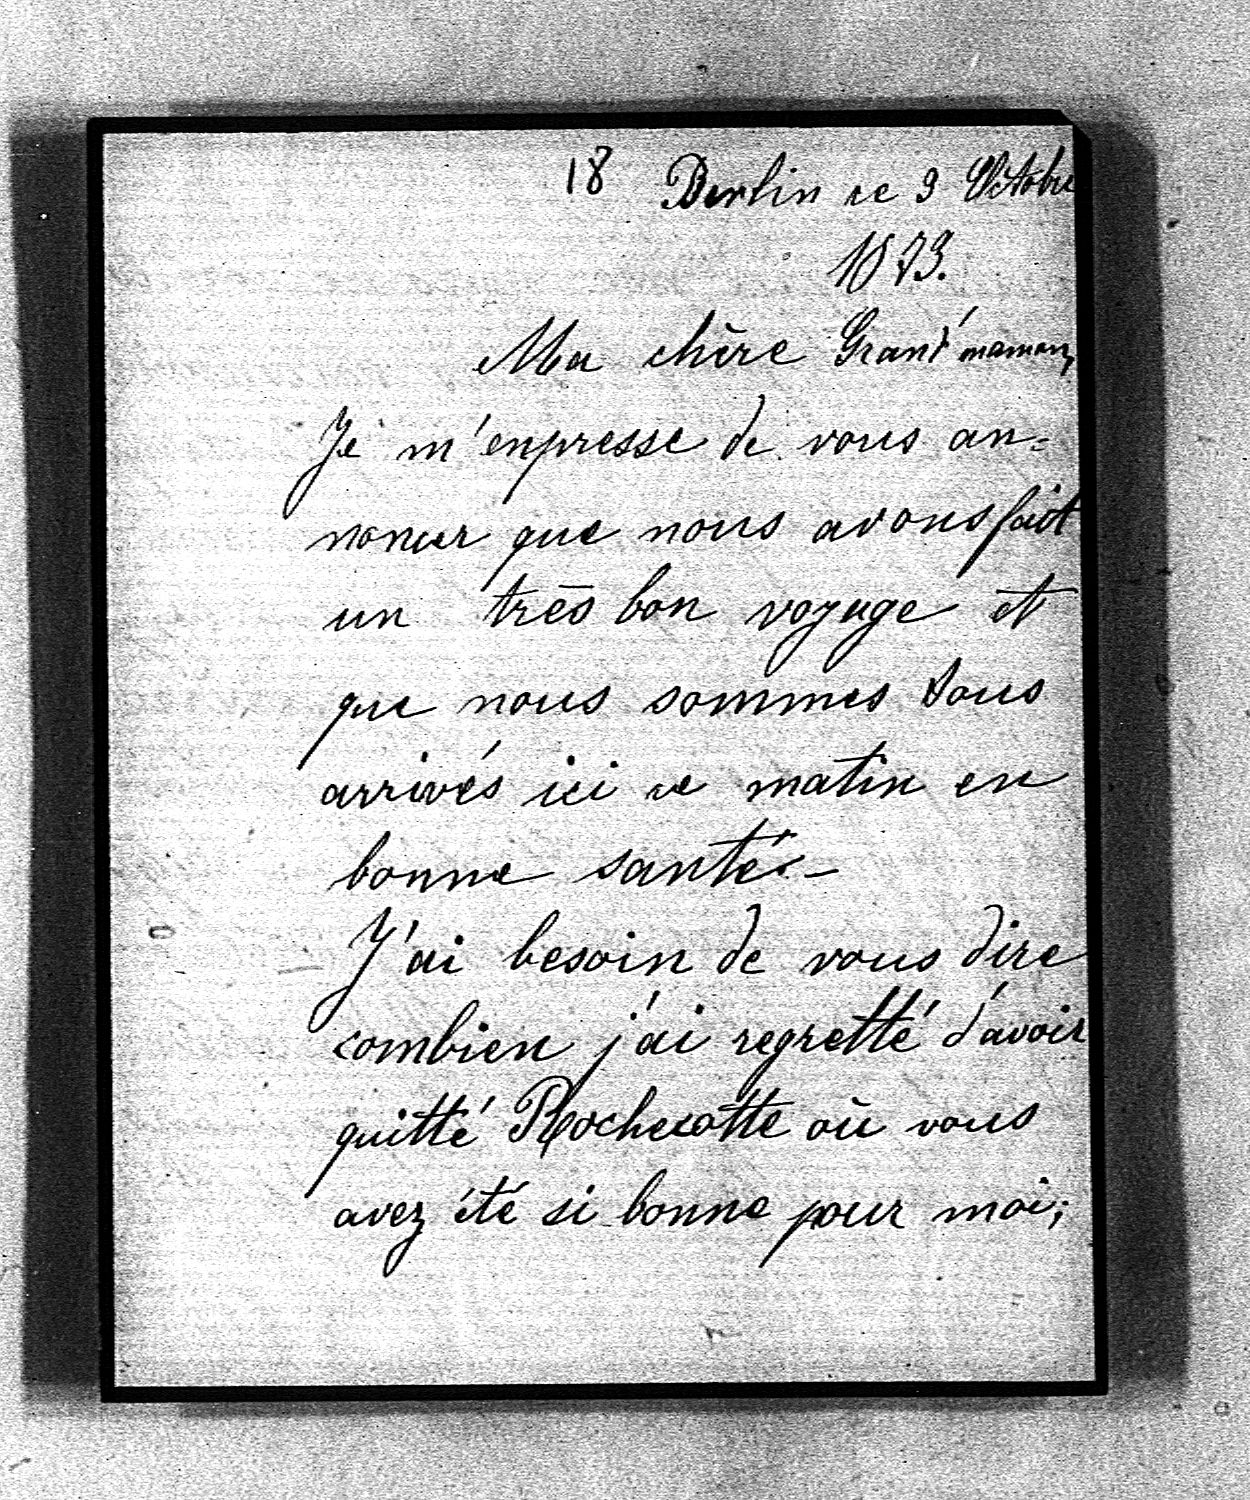 18 Berlin ce 9 Octobre
1873.
Ma chère Grand'maman,
Je m'enpresse de vous an-
noncer que nous avons fait
un très bon voyage et
que nous sommes tous
arrivés ici ce matin en
bonne santé. –
J'ai besoin de vous dire
combien j'ai regretté d'avoir
quitté Rochecotte où vous
avez été si bonne pour moi;